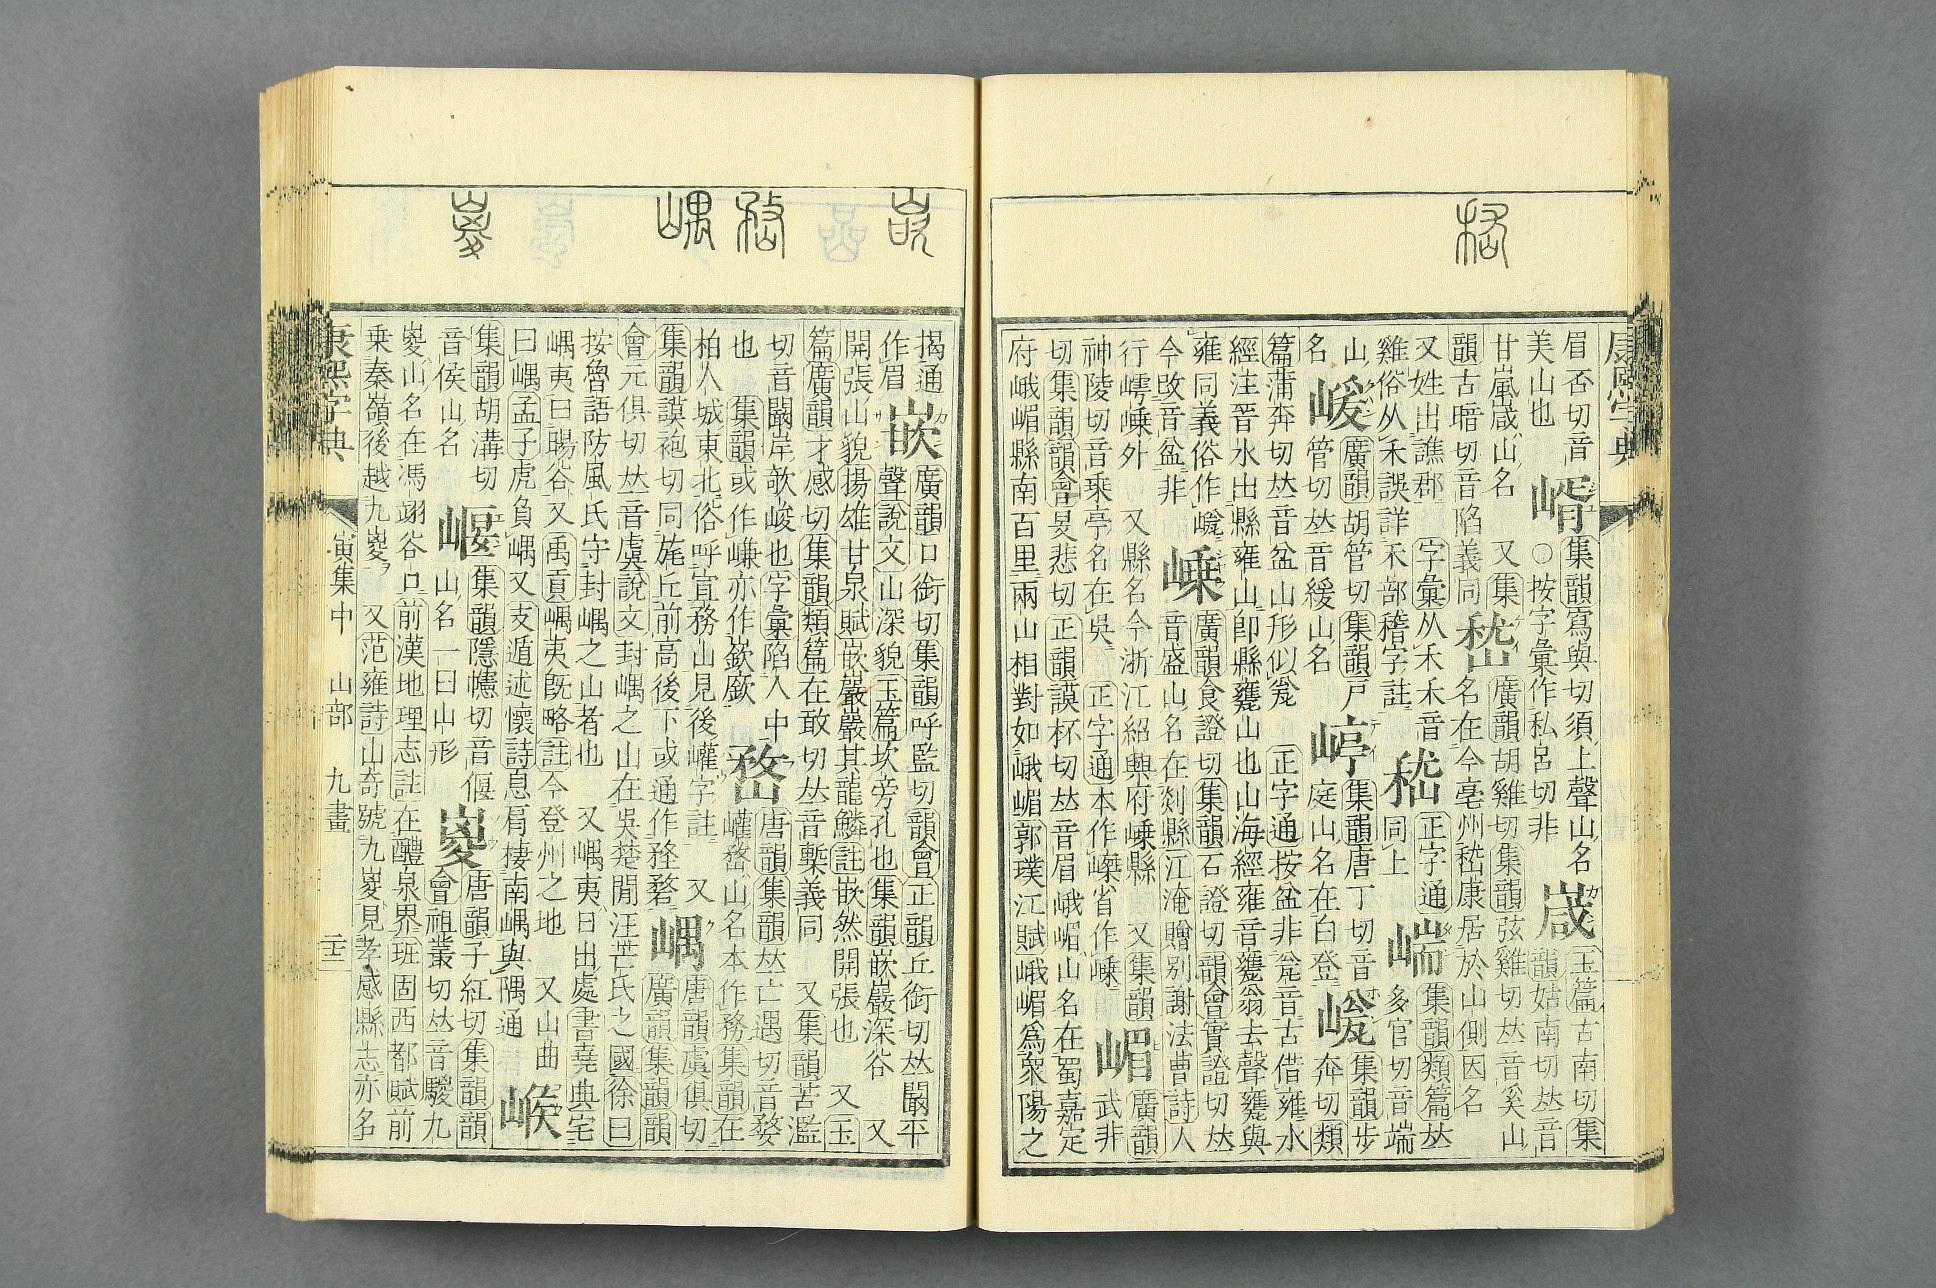 康熙字典
眉否切音美山也
嵴 集韻寫與切須上聲山名 ○按字彙作私呂切非
嵅 玉篇古南切集韻姑南切𠀤音甘嵐嵅山名 又集韻古暗切音陷義同
嵇 廣韻胡雞切集韻弦雞切𠀤音奚山名在今亳州嵇康居於山側因名 又姓出譙郡 字彙从禾禾音雞俗从禾誤詳禾部稽字註
嵇 正字通同上
㟨 集韻類篇𠀤多官切音端山名
㬊 廣韻胡管切集韻戸管切𠀤音緩山名
嵉 集韻唐丁切音庭山名在白登
集韻步奔切類篇蒲奔切𠀤音盆山形似瓮 正字通按盆非瓮音古借雍水經注晉水出縣雍山卽縣甕山也山海經雍音甕翁去聲甕與雍同義俗作今攺音盆非
嵊 廣韻食證切集韻石證切韻會實證切𠀤音盛山名在剡縣江淹贈别謝法曹詩人行嶀嵊外 又縣名今浙江紹興府嵊縣 又集韻神陵切音乘亭名在吳 正字通本作嵊省作嵊
嵋 廣韻武非切集韻韻會旻悲切正韻謨杯切𠀤音眉峨嵋山名在蜀嘉定府峨嵋縣南百里兩山相對如峨嵋郭璞江賦峨嵋爲衆陽之
揭通作眉
嵌 廣韻口銜切集韻呼監切韻會正韻丘銜切𠀤闞平聲說文山深貌玉篇坎旁孔也集韻嵌巖深谷 又開張山貌揚雄甘泉賦嵌巖巖其龍鱗註嵌然開張也 又玉篇廣韻才感切集韻類篇在敢切𠀤音槧義同 又集韻苦濫切音闞岸欹峻也字彙陷入中也 集韻或作嵰亦作嶔㢘
嵍 唐韻集韻𠀤亡遇切音婺巏嵍山名本作務集韻在柏人城東北俗呼宣務山見後巏字註 又集韻謨袍切同旄丘前高後下或通作堥嵍
嵎 唐韻虞俱切廣韻集韻韻會元俱切𠀤音虞說文封嵎之山在吳楚閒汪芒氏之國徐曰按魯語防風氏守封嵎之山者也 又嵎夷日出處書堯典宅嵎夷曰暘谷又禹貢嵎夷旣略註今登州之地 又山曲曰嵎孟子虎負嵎又支遁述懷詩息肩棲南嵎與隅通
㬋 集韻胡溝切音侯山名
集韻隱幰切音偃山名一曰山形
嵏 唐韻子紅切集韻韻會祖叢切𠀤音騣九嵏山名在馮翊谷口前漢地理志註在醴泉界班固西都賦前乗秦嶺後越九嵏 又范雍詩山奇號九嵏見孝感縣志亦名
康熙字典 寅集中 山部 九畫 二十三